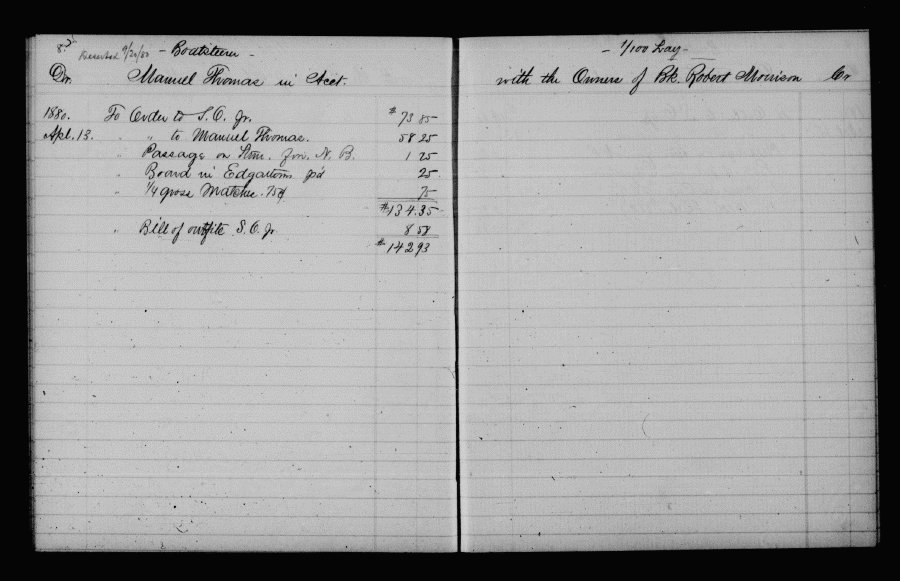 8.
Deserted 9/20/80 - Boatsteerer -
Dr. Manuel Thomas in Acct.
1880. To Order to S. O. Jr. $ 73 85
Apl. 13. " " to Manuel Thomas. 58 25
" Passage on Stmr. from N. B. 1 25
" Board in Edgartown pd 25
" 1/4 gross Matches. 75¢ 75
$ 134.35
" Bill of outfits S. O. Jr 8 58
$ 142 93
- 1/100 Lay -
with the Owners of Bk. Robert Morrison Cr